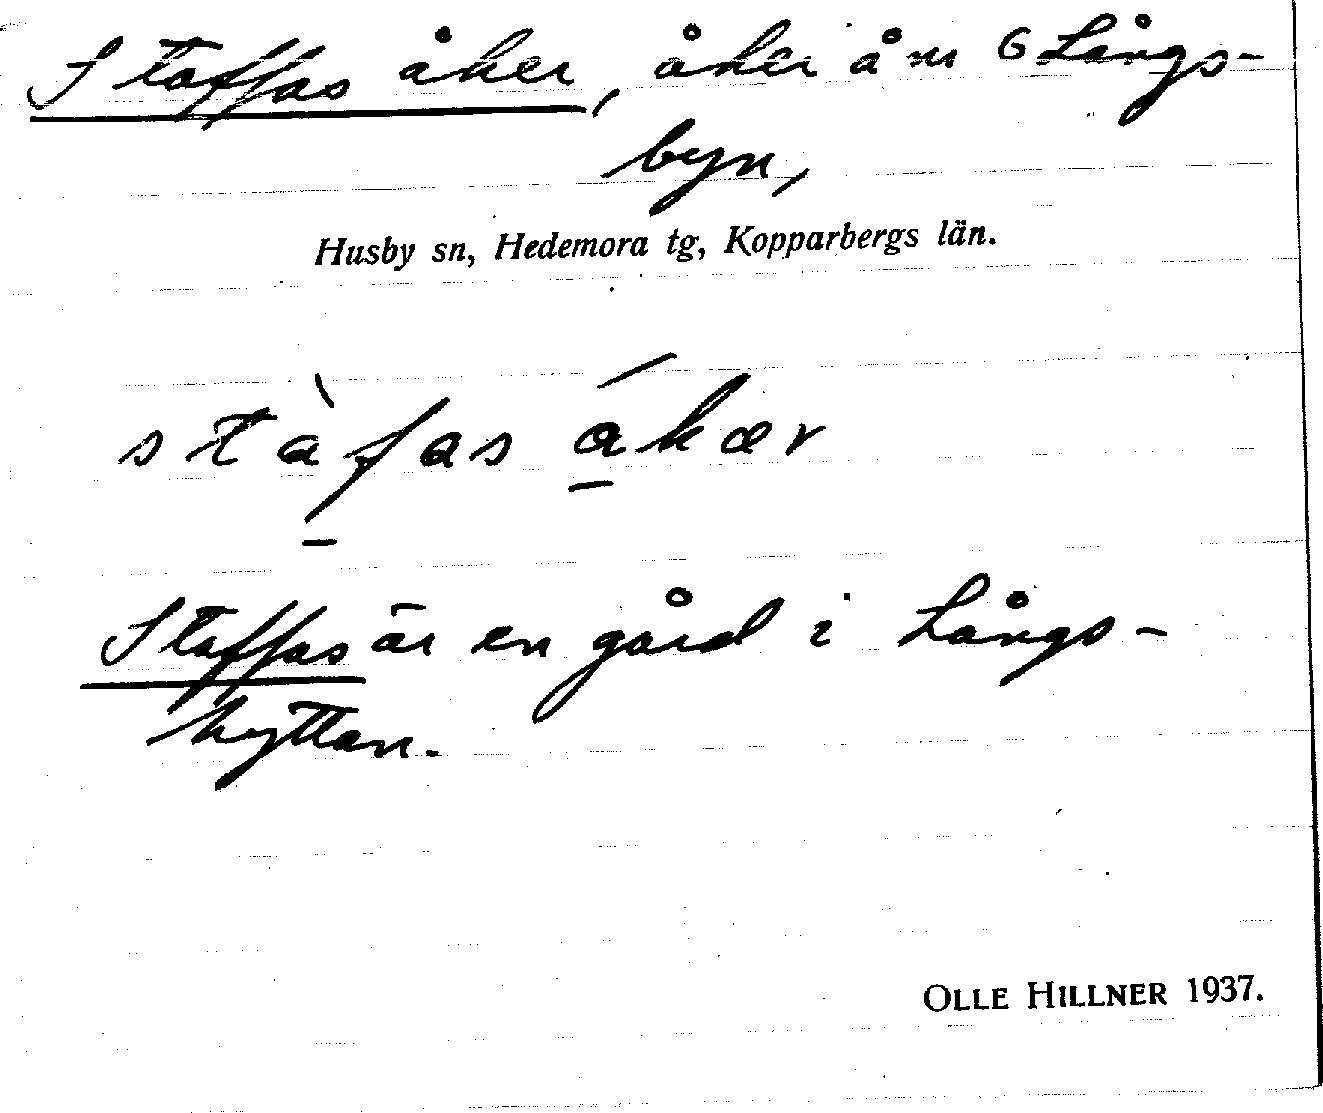 Staffas åker, åker å nr 6 Långs-
byn,
Husby sn, Hedemora tg, Kopparbergs län.
stàfas ákær
Staffas är en gård i Långs-
hyttan.
OLLE HILLNER 1937.